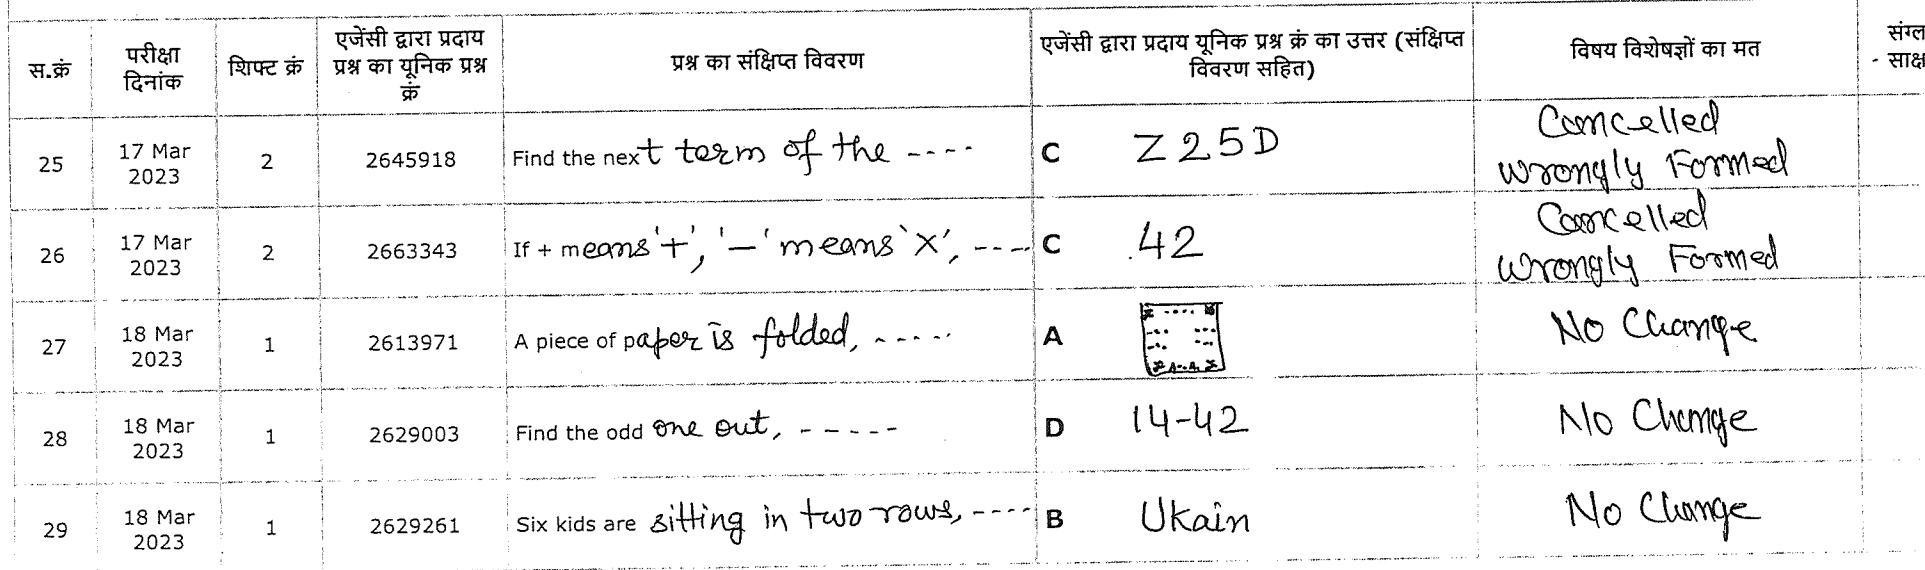 स.क्रं परीक्षा दिनांक शिफ्ट क्रं एजेंसी द्वारा प्रदाय प्रश्न का यूनिक प्रश्न क्रं प्रश्न का संक्षिप्त विवरण एजेंसी द्वारा प्रदाय यूनिक प्रश्न क्रं का उत्तर (संक्षिप्त विवरण सहित) विषय विशेषज्ञों का मत
25 17 Mar 2023 2 2645918 Find the next term of the ---- C Z25D Cancelled Wrongly Formed
26 17 Mar 2023 2 2663343 If + means '+', '-' means 'X', ---- C 42 Cancelled Wrongly Formed
27 18 Mar 2023 1 2613971 A piece of paper is folded, ----- A No Change
28 18 Mar 2023 1 2629003 Find the odd one out, ----- D 14-42 No Change
29 18 Mar 2023 1 2629261 Six kids are sitting in two rows, ---- B Ukain No Change